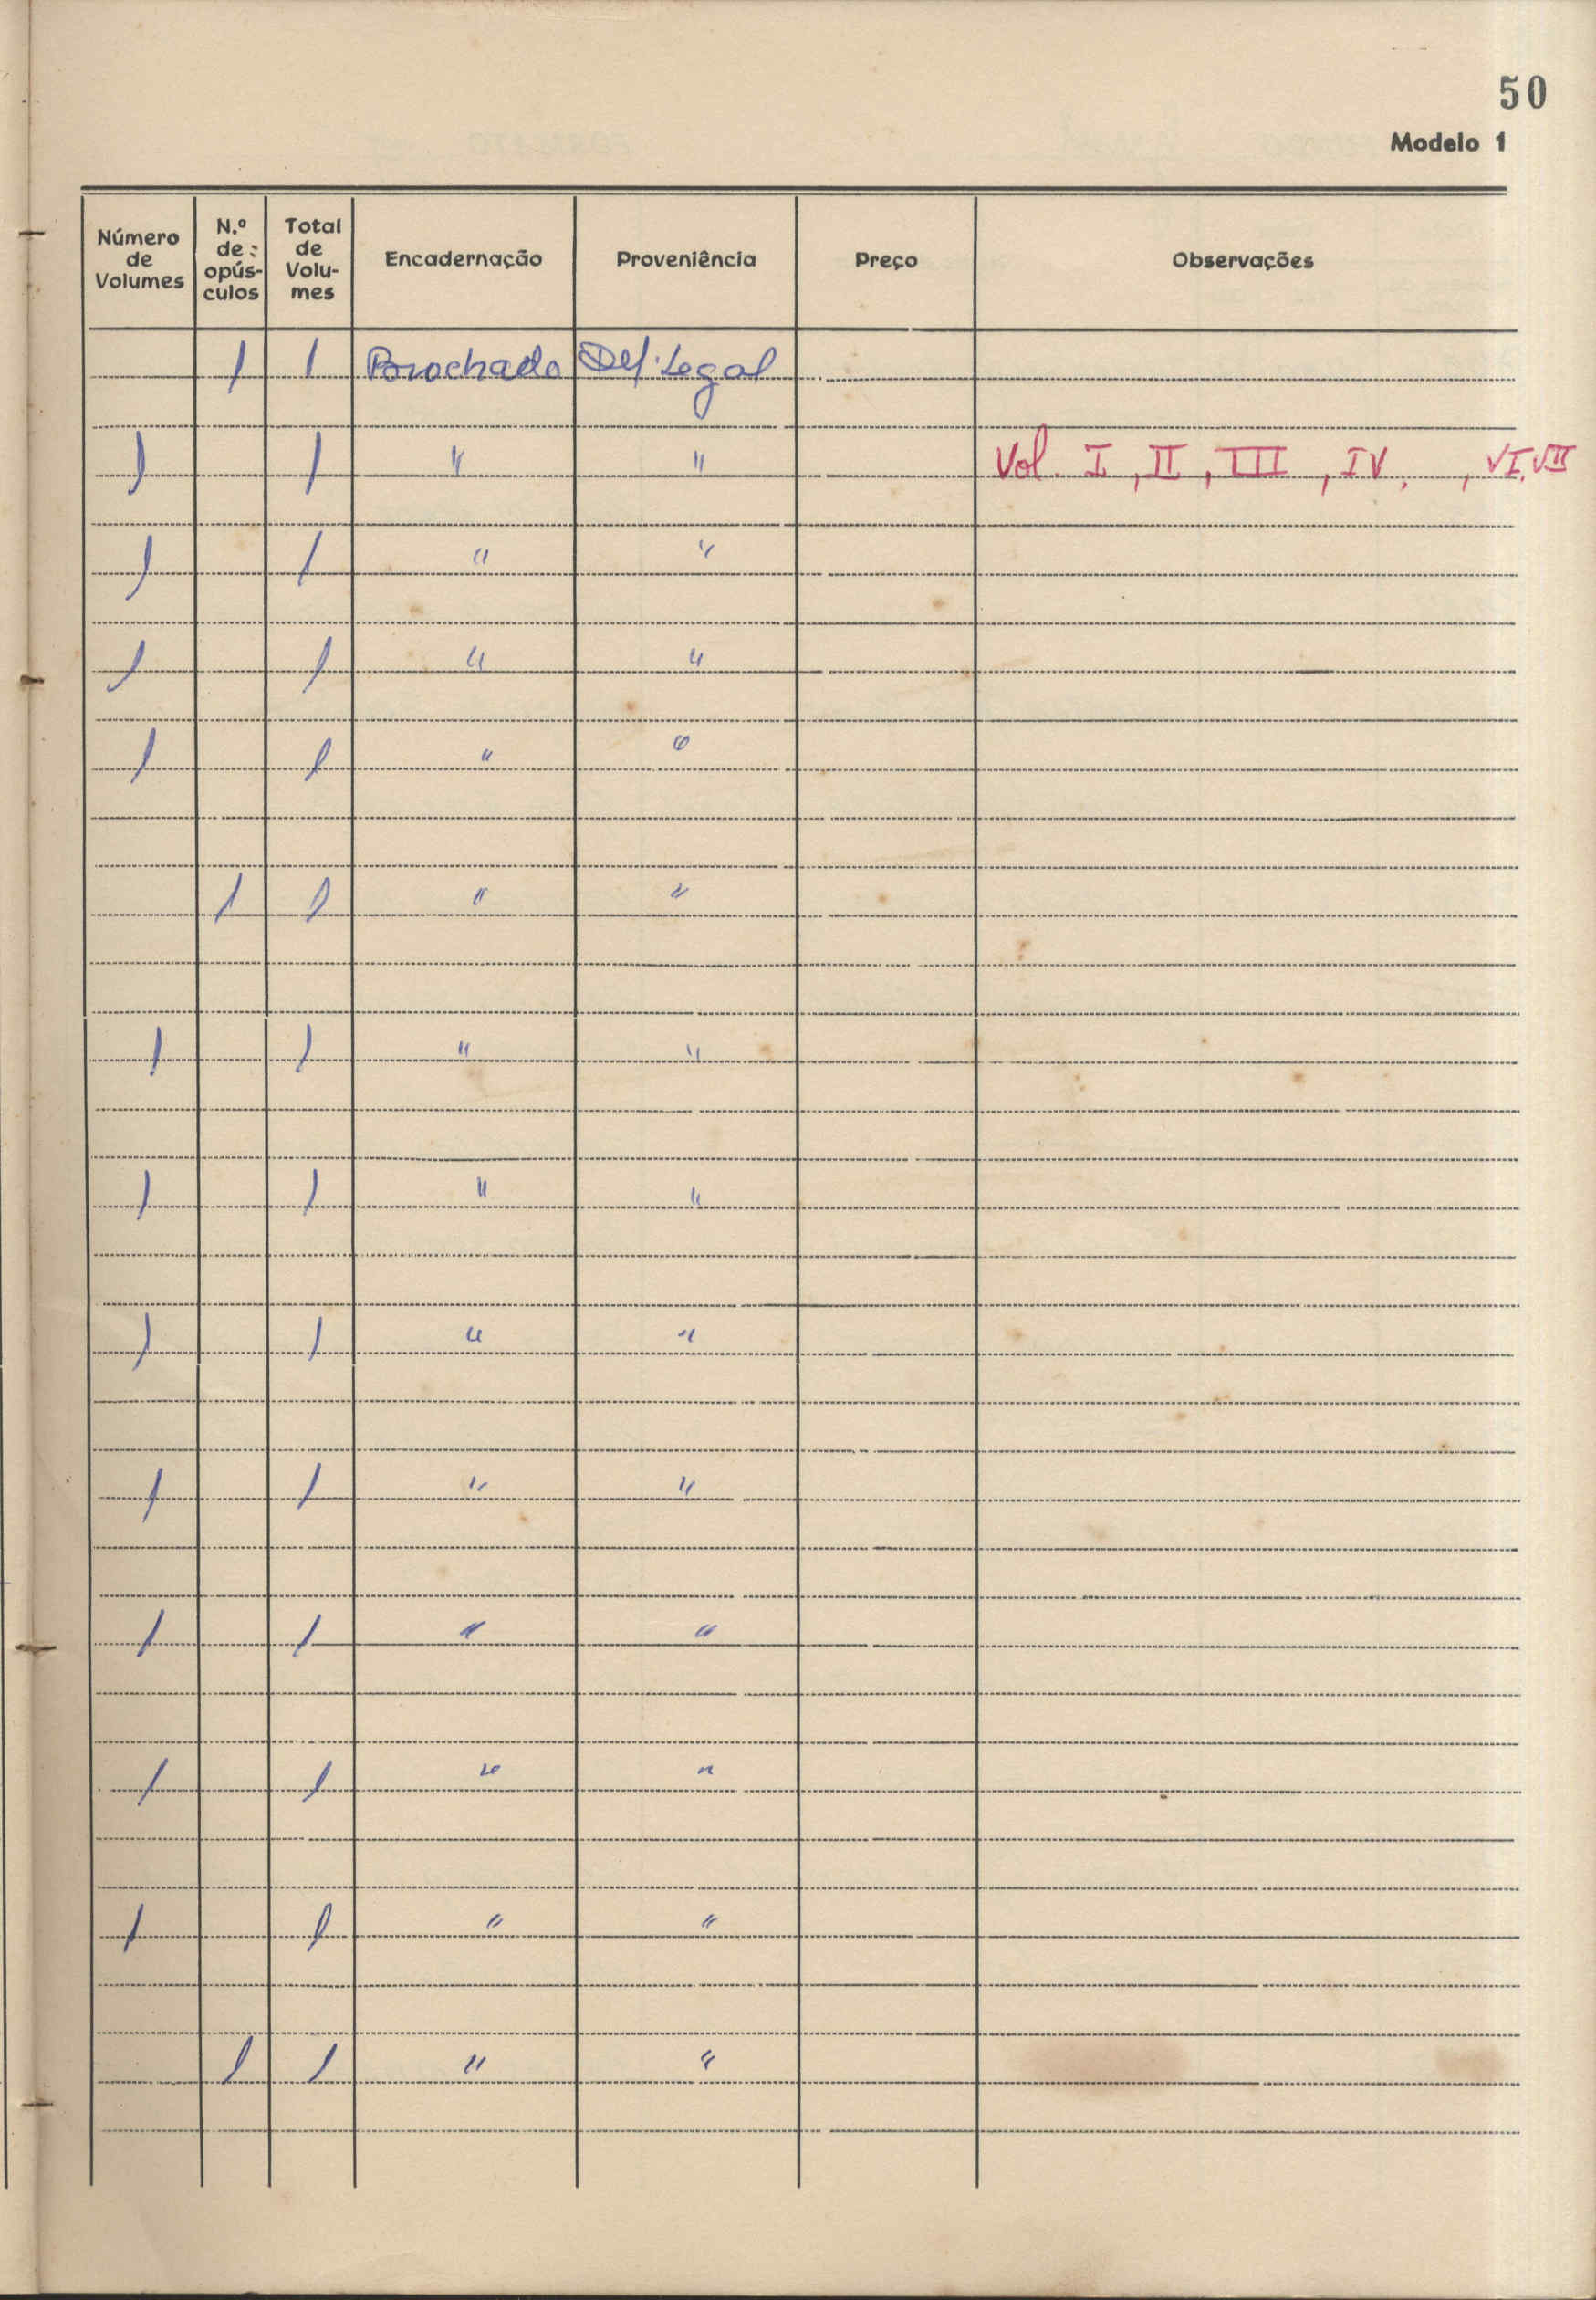 50
Modelo 1
Número de Volumes N.º de opús- culos Total de Volu- mes Encadernação Proveniência Preço Observações
1 1 Brochado Dep. Legal
1 1 " " Vol. I, II, III, IV, , VI, VII
1 1 " "
1 1 " "
1 1 " "
1 1 " "
1 1 " "
1 1 " "
1 1 " "
1 1 " "
1 1 " "
1 1 " "
1 1 " "
1 1 " "